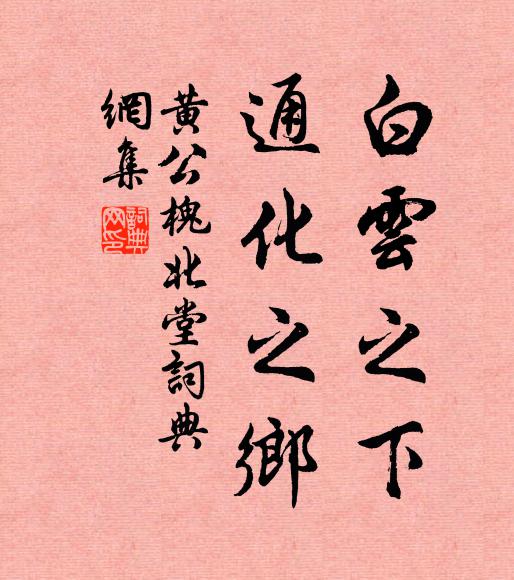 白雲之下
通化之鄉
黄公槐北堂詞典
網集
詞典
網印